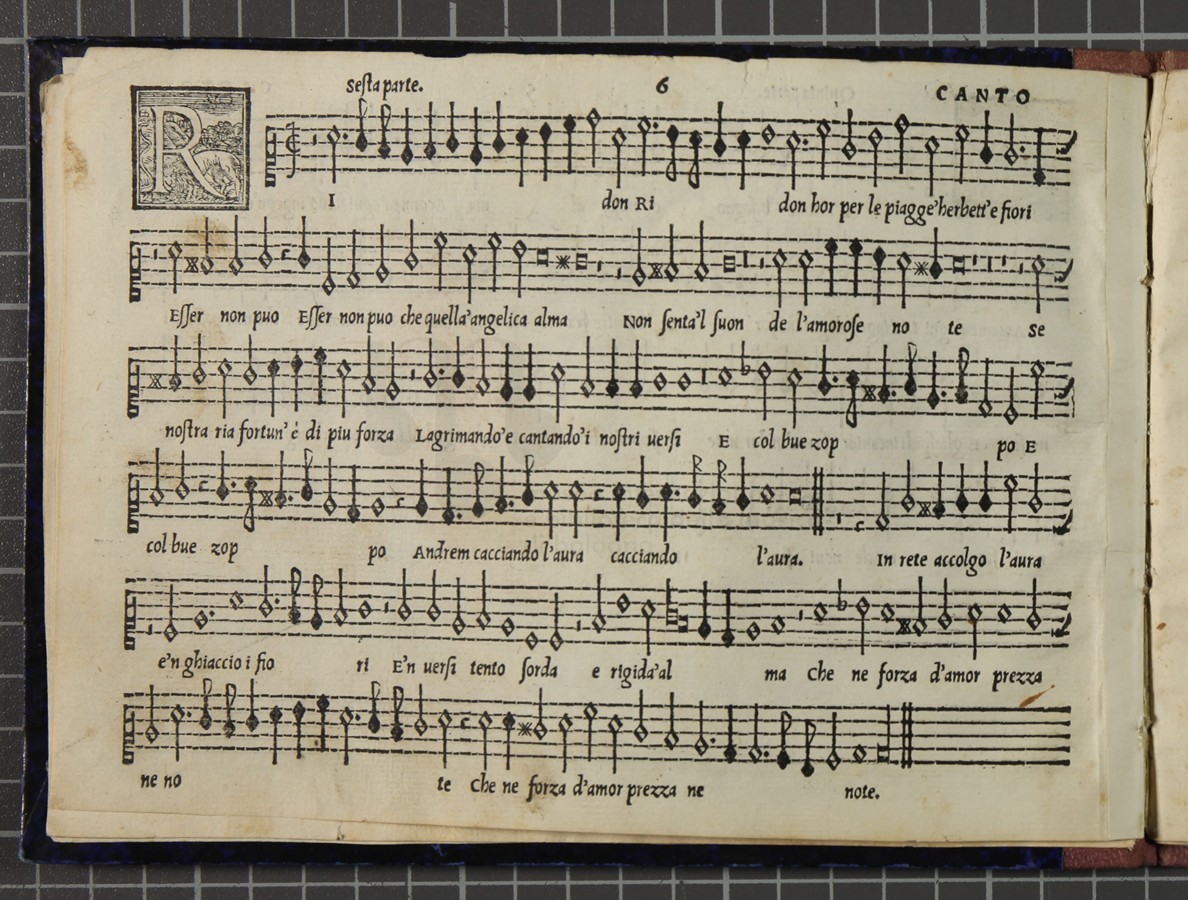 Sesta parte. 6 CANTO
RI don Ri don hor per le piagge'herbett'e fiori
Esser non puo Esser non puo che quella'angelica alma Non senta'l suon de l'amorose no te se
nostra ria fortun' è di piu forza Lagrimando'e cantando'i nostri uersi E col bue zop po E
col bue zop po Andrem cacciando l'aura cacciando l'aura. In rete accolgo l'aura
e'n ghiaccio i fio ri E'n uersi tento sorda e rigida'al ma Che ne forza d'amor prezza
ne no te Che ne forza d'amor prezza ne note.